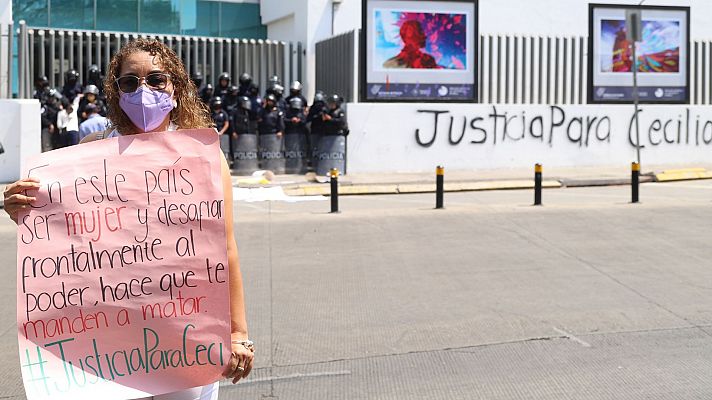 En este país
ser mujer y desafiar
frontalmente al
poder, hace que te
manden a matar.
#JusticiaParaCeci
Justicia Para Cecilia
POLICIA
POLICIA
POLICIA